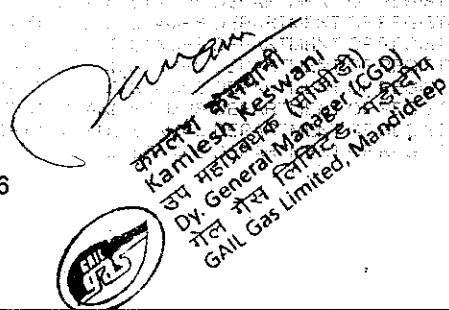 कमलेश केसवानी
Kamlesh Keswani
उप महाप्रबंधक (सीजीडी)
Dy. General Manager (CGD)
गेल गैस लिमिटेड, मंडीदीप
GAIL Gas Limited, Mandideep
6
GAIL
gas